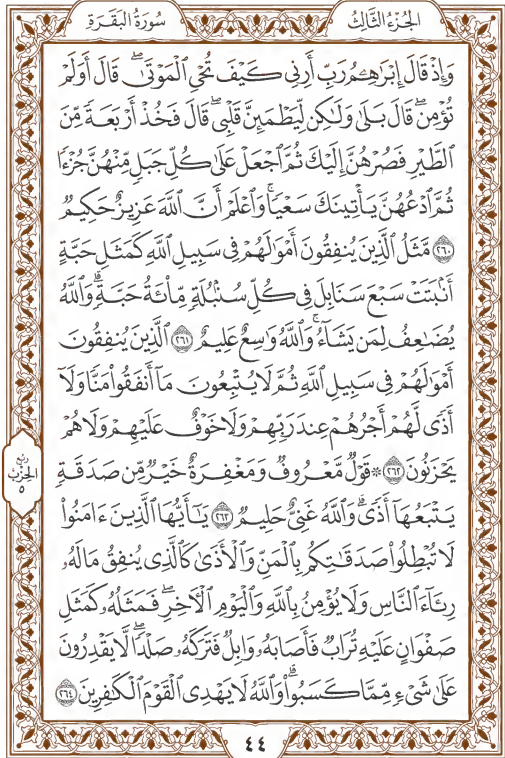 الجزء الثالث
سورة البقرة
وَإِذْ قَالَ إِبْرَٰهِـۧمُ رَبِّ أَرِنِى كَيْفَ تُحْىِ ٱلْمَوْتَىٰ ۖ قَالَ أَوَلَمْ
تُؤْمِن ۖ قَالَ بَلَىٰ وَلَٰكِن لِّيَطْمَئِنَّ قَلْبِى ۖ قَالَ فَخُذْ أَرْبَعَةً مِّنَ
ٱلطَّيْرِ فَصُرْهُنَّ إِلَيْكَ ثُمَّ ٱجْعَلْ عَلَىٰ كُلِّ جَبَلٍ مِّنْهُنَّ جُزْءًا
ثُمَّ ٱدْعُهُنَّ يَأْتِينَكَ سَعْيًا ۚ وَٱعْلَمْ أَنَّ ٱللَّهَ عَزِيزٌ حَكِيمٌ
٢٦٠ مَّثَلُ ٱلَّذِينَ يُنفِقُونَ أَمْوَٰلَهُمْ فِى سَبِيلِ ٱللَّهِ كَمَثَلِ حَبَّةٍ
أَنۢبَتَتْ سَبْعَ سَنَابِلَ فِى كُلِّ سُنۢبُلَةٍ مِّا۟ئَةُ حَبَّةٍ ۗ وَٱللَّهُ
يُضَٰعِفُ لِمَن يَشَآءُ ۚ وَٱللَّهُ وَٰسِعٌ عَلِيمٌ ٢٦١ ٱلَّذِينَ يُنفِقُونَ
أَمْوَٰلَهُمْ فِى سَبِيلِ ٱللَّهِ ثُمَّ لَا يُتْبِعُونَ مَآ أَنفَقُوا۟ مَنًّا وَلَآ
أَذًى ۙ لَّهُمْ أَجْرُهُمْ عِندَ رَبِّهِمْ وَلَا خَوْفٌ عَلَيْهِمْ وَلَا هُمْ
يَحْزَنُونَ ٢٦٢ ۞ قَوْلٌ مَّعْرُوفٌ وَمَغْفِرَةٌ خَيْرٌ مِّن صَدَقَةٍ
يَتْبَعُهَآ أَذًى ۗ وَٱللَّهُ غَنِىٌّ حَلِيمٌ ٢٦٣ يَٰٓأَيُّهَا ٱلَّذِينَ ءَامَنُوا۟
لَا تُبْطِلُوا۟ صَدَقَٰتِكُم بِٱلْمَنِّ وَٱلْأَذَىٰ كَٱلَّذِى يُنفِقُ مَالَهُۥ
رِئَآءَ ٱلنَّاسِ وَلَا يُؤْمِنُ بِٱللَّهِ وَٱلْيَوْمِ ٱلْءَاخِرِ ۖ فَمَثَلُهُۥ كَمَثَلِ
صَفْوَانٍ عَلَيْهِ تُرَابٌ فَأَصَابَهُۥ وَابِلٌ فَتَرَكَهُۥ صَلْدًا ۖ لَّا يَقْدِرُونَ
عَلَىٰ شَىْءٍ مِّمَّا كَسَبُوا۟ ۗ وَٱللَّهُ لَا يَهْدِى ٱلْقَوْمَ ٱلْكَٰفِرِينَ ٢٦٤
ربع
الحزب
٥
٤٤